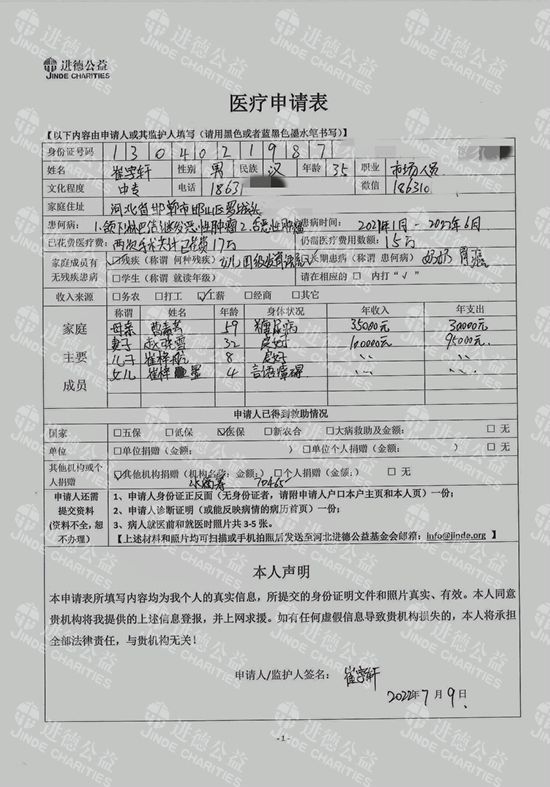 进德公益
JINDE CHARITIES
医疗申请表
【以下内容由申请人或其监护人填写（请用黑色或者蓝黑色墨水笔书写）】
身份证号码 1304021987
姓名 崔宇轩 性别 男 民族 汉 年龄 35 职业 市场人员
文化程度 中专 电话 18631 微信 186310
家庭住址 河北省邯郸市邯山区罗城头
患何病： 1. 患病时间： 2021年1月-2022年6月
已花费医疗费： 两次手术共计已花费17万 仍需医疗费用数额： 15万
家庭成员有无残疾患病 ☑残疾（称谓 何种残疾） 女儿 ☑长期患病（称谓 患何病） 奶奶
□学生（称谓 就读年级） 请在相应的 □ 内打 “√”
收入来源 □务农 □打工 ☑工薪 □经商 □其它
家庭主要成员 称谓 姓名 年龄 身体状况 年收入 年支出
母亲 59 糖尿病 35000元 30000元
妻子 32 良好 100000元 95000元
儿子 8 良好 〃 〃
女儿 4 言语障碍 〃 〃
申请人已得到救助情况
国家 □五保 □低保 ☑医保 □新农合 □大病救助及金额： □ 无
单位 □单位捐赠（金额： ） □单位个人捐赠（金额： ） □ 无
其他机构或个人捐赠 ☑其他机构捐赠（机构名称：金额：） □个人捐赠（金额：） □ 无
水滴筹 70465
申请人还需提交资料（资料不全，恕不办理）
1、申请人身份证正反面（无身份证者，请附申请人户口本户主页和本人页）一份；
2、申请人诊断证明（或能反映病情的病历首页）一份；
3、病人就医前和就医时照片共 3-5 张。
【上述材料和照片均可扫描或手机拍照后发送至河北进德公益基金会邮箱：info@jinde.org 】
本人声明
本申请表所填写内容均为我个人的真实信息，所提交的身份证明文件和照片真实、有效。本人同意
贵机构将我提供的上述信息登报，并上网求援。如有任何虚假信息导致贵机构损失的，本人将承担
全部法律责任，与贵机构无关！
申请人/监护人签名： 崔宇轩
2022年7月9日.
- 1 -